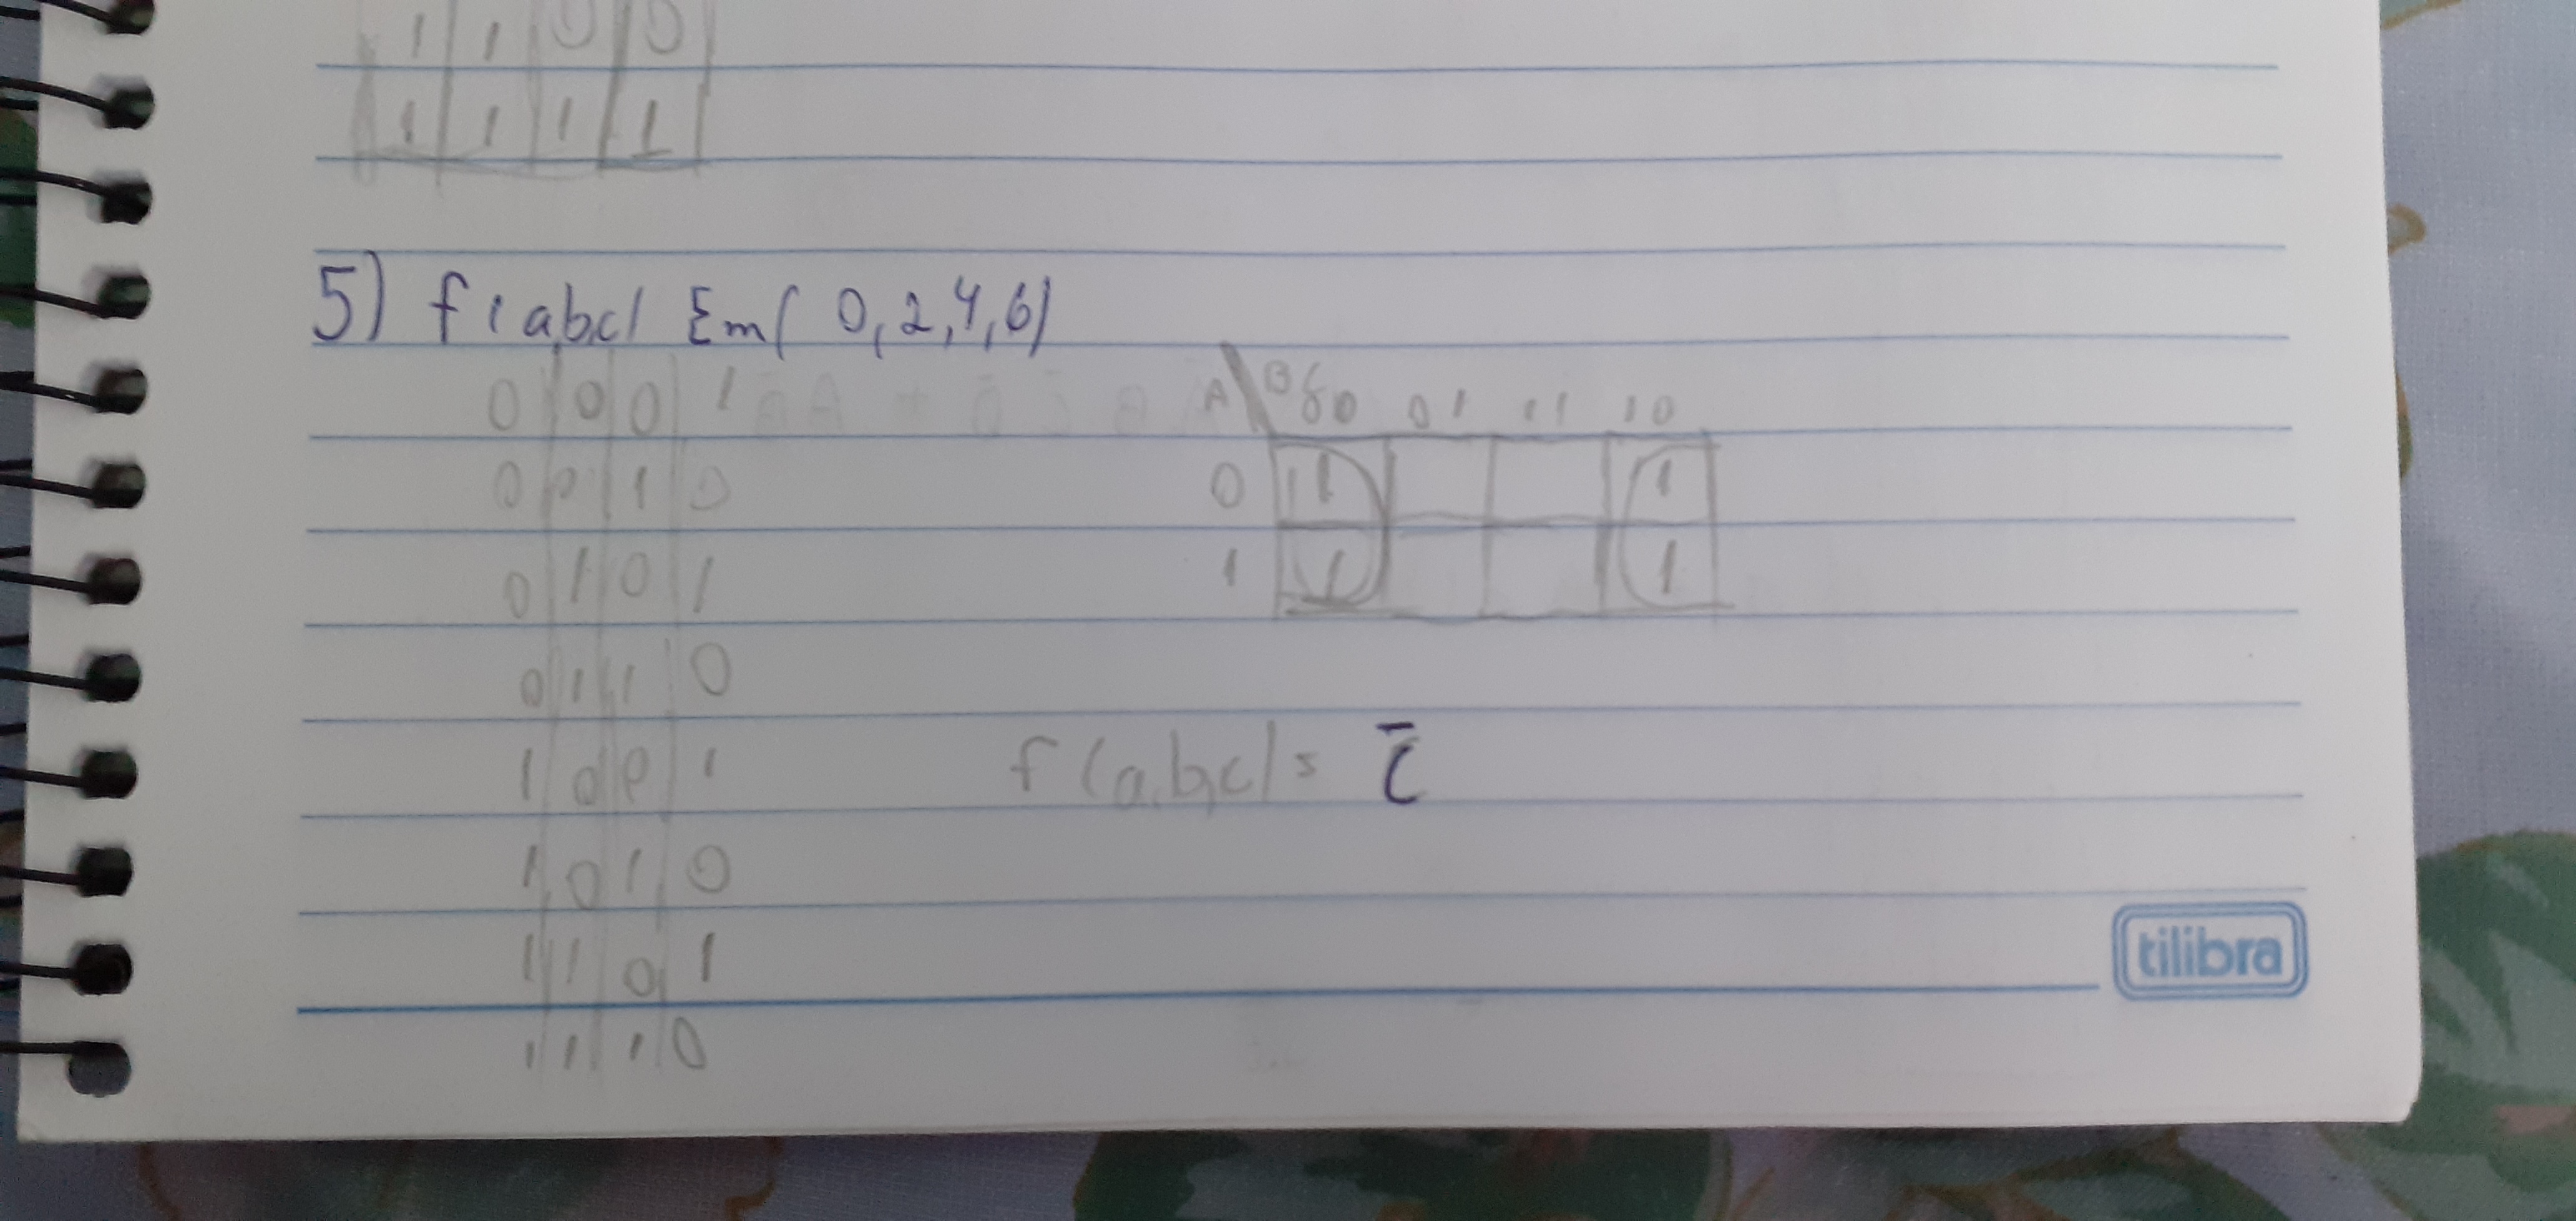 1 1 0 0
1 1 1 1
5) f(abc) Σm( 0,2,4,6)
0 0 0 1
0 0 1 0
0 1 0 1
0 1 1 0
1 0 0 1
1 0 1 0
1 1 0 1
1 1 1 0
A BC 00 01 11 10
0 1 1
1 1 1
f(a,b,c)= C̄
tilibra